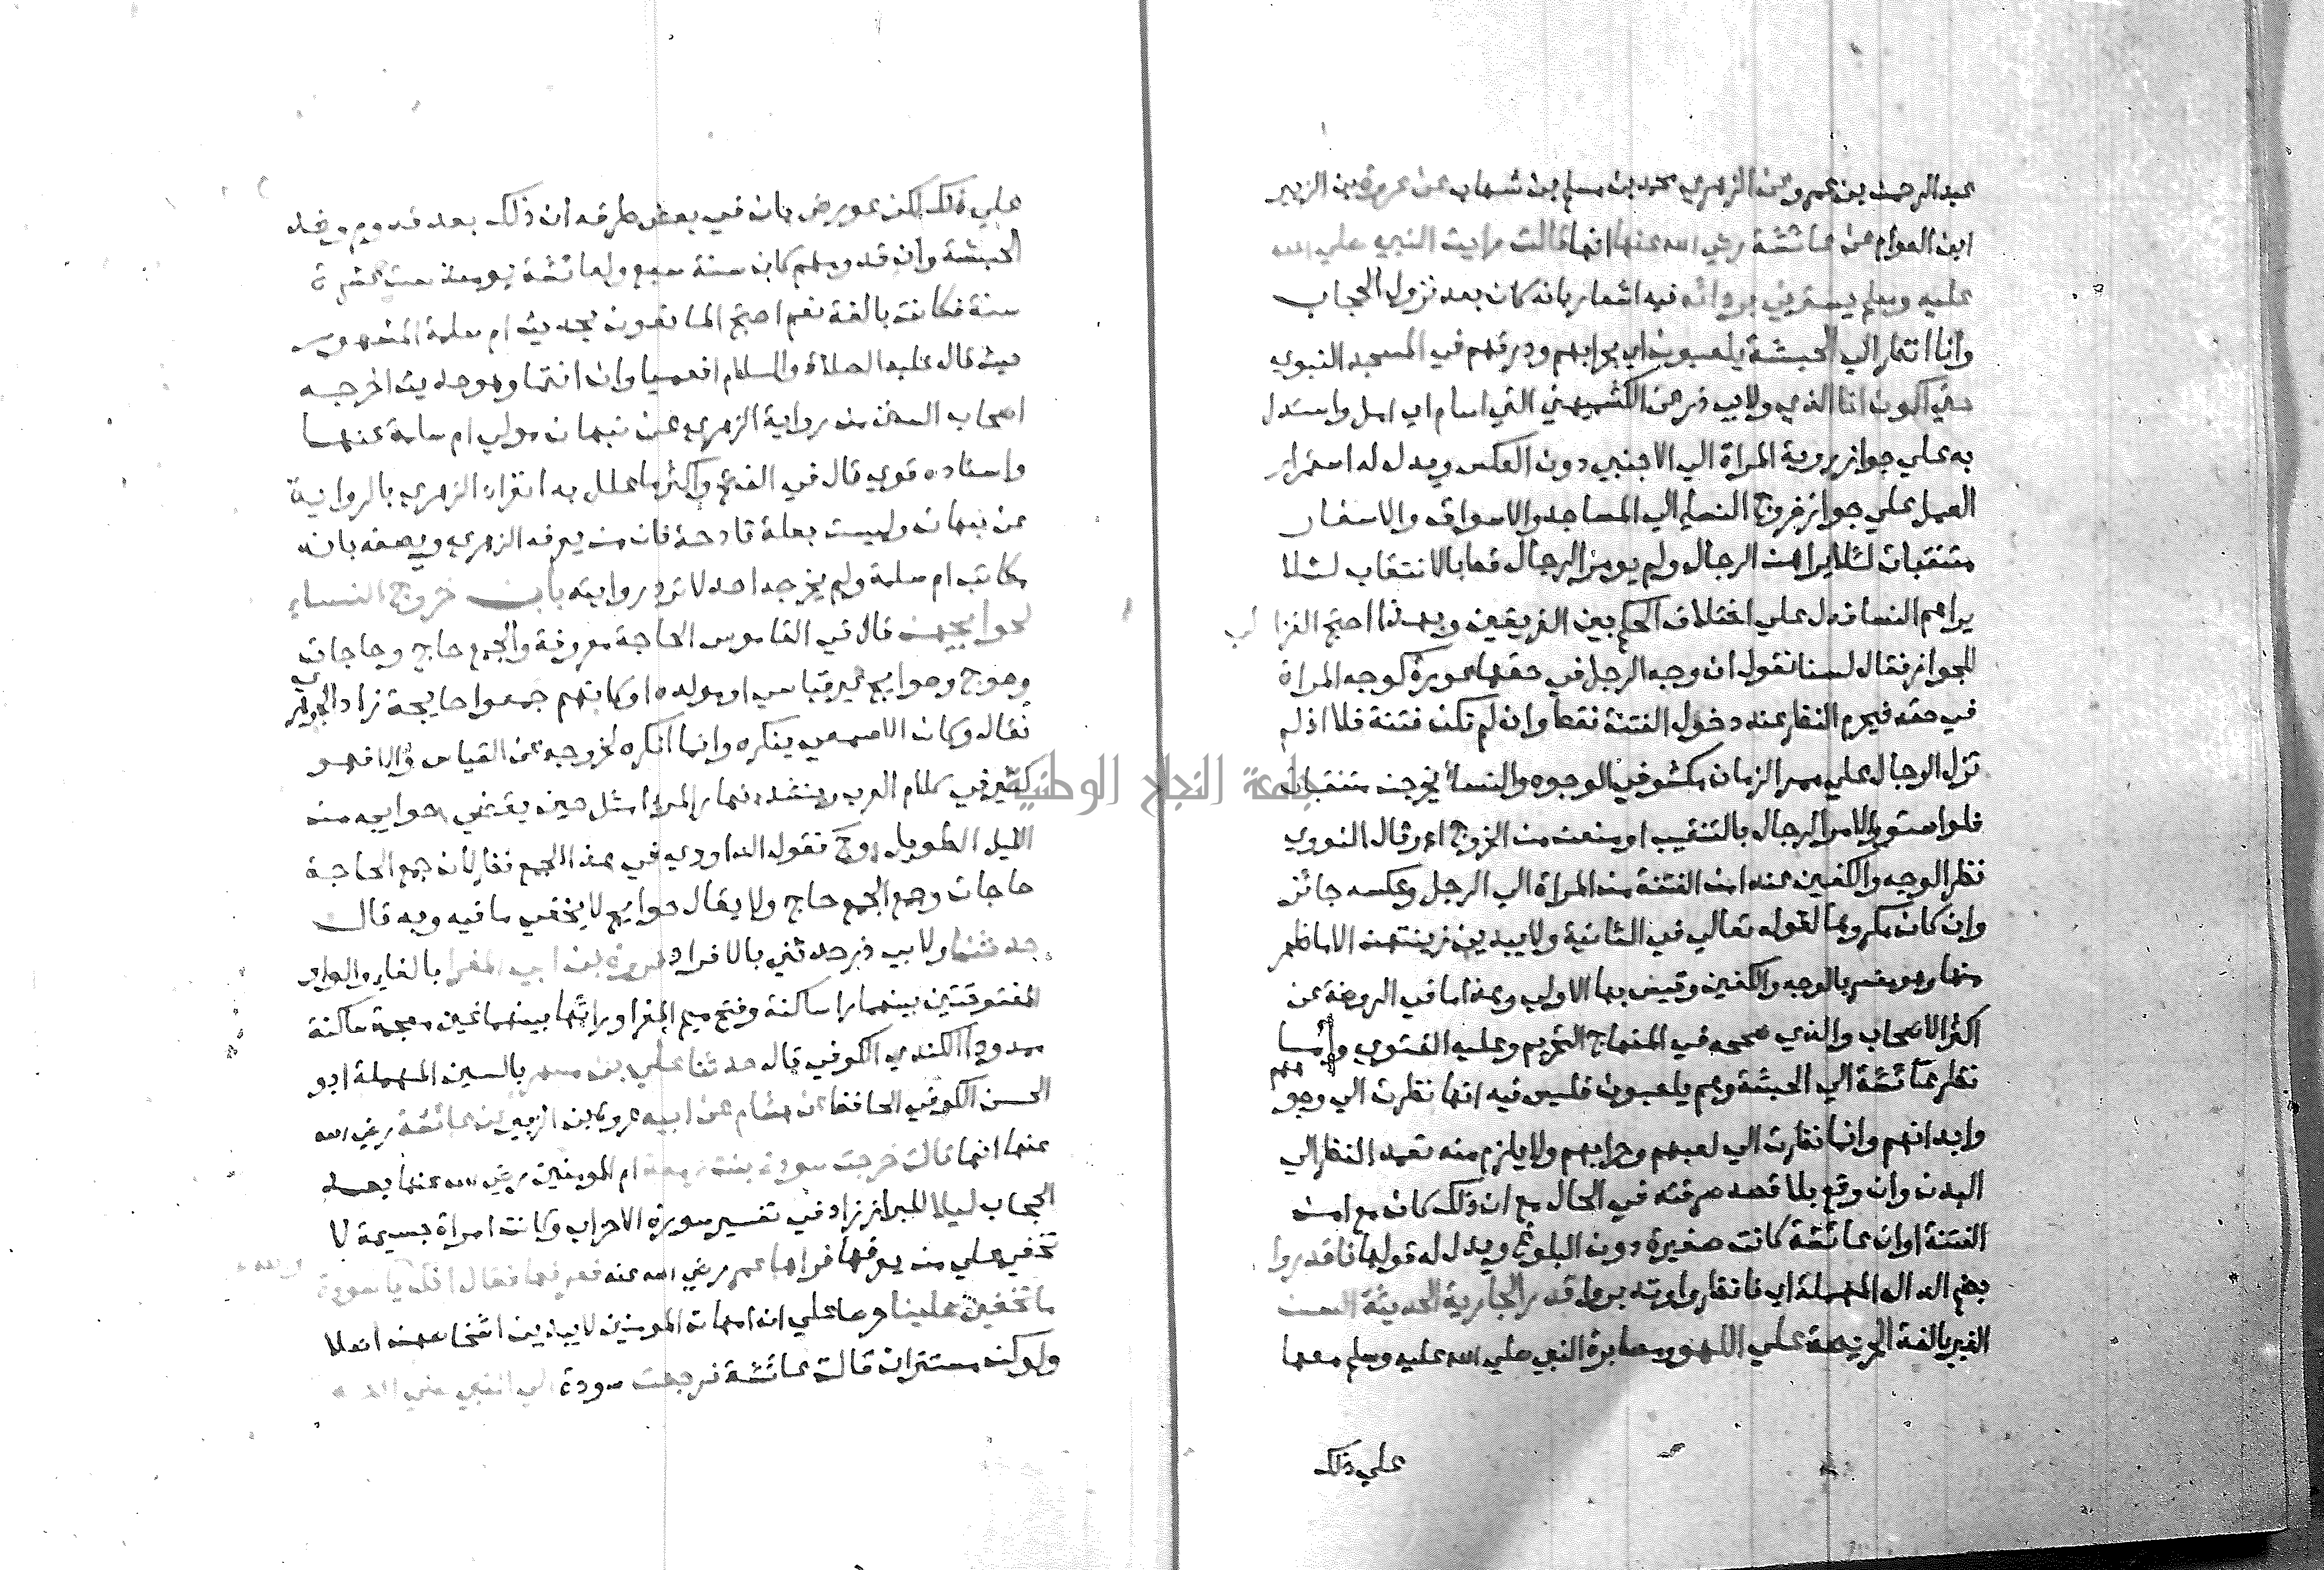 عبد الرحمن بن عمرو عن الزهري محمد بن مسلم بن شهاب عن عروة بن الزبير
ابن العوام عن عائشة رضي الله عنها انها قالت رايت النبي صلي الله
عليه وسلم يسترني بردائه فيه اشعار بانه كان بعد نزول الحجاب
وأنا انظر الي الحبشة يلعبون اي بحرابهم ودرقهم في المسجد النبوي
حتي اكون انا الذي ولابي ذر عن الكشميهني التي اسام اي امل واستدل
به علي جواز روية المراة الي الاجنبي دون العكس ويدل له استمرار
العمل علي جواز خروج النساء الي المساجد والاسواق والاسفار
متنقبات لئلا يراهن الرجال ولم يومر الرجال قط بالانتقاب لئلا
يراهم النسا فدل علي اختلاف الحكم بين الفريقين وبهذا احتج الغزالي
للجواز فقال لسنا نقول ان وجه الرجل في حقها عورة كوجه المراة
في حقه فيحرم النظر عند خوف الفتنة فقط وان لم تكن فتنة فلا اذ لم
تزل الرجال علي ممر الزمان مكشوفي الوجوه والنساء يخرجن متنقبات
فلو استووا لامر الرجال بالتنقيب او منعن من الخروج اه وقال النووي
نظر الوجه والكفين عند امن الفتنة من المراة الي الرجل وعكسه جائز
وان كان مكروها لقوله تعالي في الثانية ولا يبدين زينتهن الا ما ظهر
منها وهو مفسر بالوجه والكفين وقيس بها الاولي وهذا ما في الروضة عن
اكثر الاصحاب والذي صححه في المنهاج التحريم وعليه الفتوي وأما
نظر عائشة الي الحبشة وهم يلعبون فليس فيه انها نظرت الي وجوههم
وابدانهم وانما نظرت الي لعبهم وحرابهم ولا يلزم منه تعمد النظر الي
البدن وان وقع بلا قصد صرفته في الحال مع ان ذلك كان مع امن
الفتنة اوان عائشة كانت صغيرة دون البلوغ ويدل له قولها فاقدروا
بضم الدال المهملة اي فانظروا وتدبروا قدر الجارية الحديثة السن
الغير بالغة الحريصة علي اللهو ومصابرة النبي صلي الله عليه وسلم معها
علي ذلك
علي ذلك لكن عورض بان في بعض طرقه ان ذلك بعد قدوم وفد
الحبشة وان قدومهم كان سنة سبع ولعائشة يومئذ ست عشرة
سنة فكانت بالغة نعم احتج المانعون بحديث ام سلمة المشهور
حيث قال عليه الصلاة والسلام افعميا وان انتما وهو حديث اخرجه
اصحاب السنن من رواية الزهري عن نبهان مولي ام سلمة عنها
واسناده قوي قال في الفتح واكثر ما علل به انفراد الزهري بالرواية
عن نبهان وليست بعلة قادحة فان من يعرفه الزهري ويصفه بانه
مكاتب ام سلمة ولم يخرجه احد لا ترد روايته باب خروج النساء
لحوايجهن قال في القاموس الحاجة معروفة والجمع حاج وحاجات
وحوج وحوايج غير قياسي او مولدة او كانهم جمعوا حايجة زاد الجوهري
فقال وكان الاصمعي ينكره وانما انكره لخروجه عن القياس والا فهو
كثير في كلام العرب وينشد نهار المرء امثل حين يقضي حوايجه من
الليل الطويل وح فقول الداودي في هذا الجمع نظر لأن جمع الحاجة
حاجات وجمع الجمع حاج ولا يقال حوايج لا يخفي ما فيه وبه قال
حدثنا ولابي ذر حدثني بالافراد فروة بن ابي المغرا بالفاء والواو
المفتوحتين بينهما را ساكنة وفتح ميم المغرا ورائها بينهما غين معجمة ساكنة
ممدودا الكندي الكوفي قال حدثنا علي بن مسهر بالسين المهملة ابو
الحسن الكوفي الحافظ عن هشام عن ابيه عروة بن الزبير عن عائشة رضي الله
عنها انها قالت خرجت سودة بنت زمعة ام المومنين رضي الله عنها بعد
الحجاب ليلا للبراز زاد في تفسير سورة الاحزاب وكانت امراة جسيمة لا
تخفي علي من يعرفها فراها عمر رضي الله عنه فعرفها فقال انك يا سودة والله
ما تخفين علينا حرصا علي ان امهات المومنين لا يبدين اشخاصهن اصلا
ولو كن مستترات قالت عائشة فرجعت سودة الي النبي صلي الله